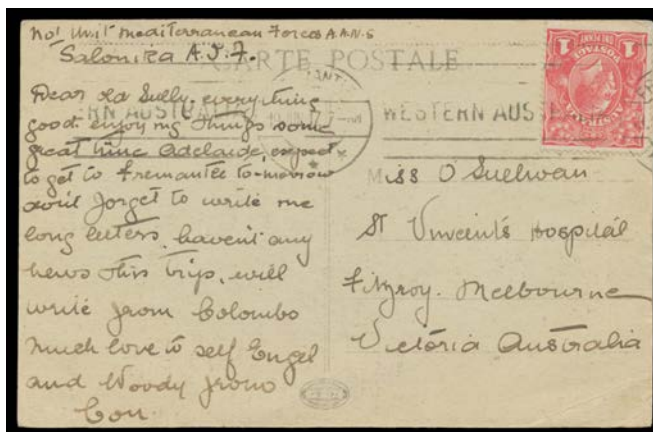 No 1 Unit Mediterranean Forces A.A.N.S
Salonika A.I.F.
CARTE POSTALE
Dear old Sully, everything
good. enjoying things some
great time Adelaide, expect
to get to Fremantle to-morrow
dont forget to write me
long letters, havent any
news this trip, will
write from Colombo
much love to self Engel
and Woody from
Con
WESTERN AUS
Miss O'Sullivan
St Vincents Hospital
Fitzroy. Melbourne
Victoria Australia